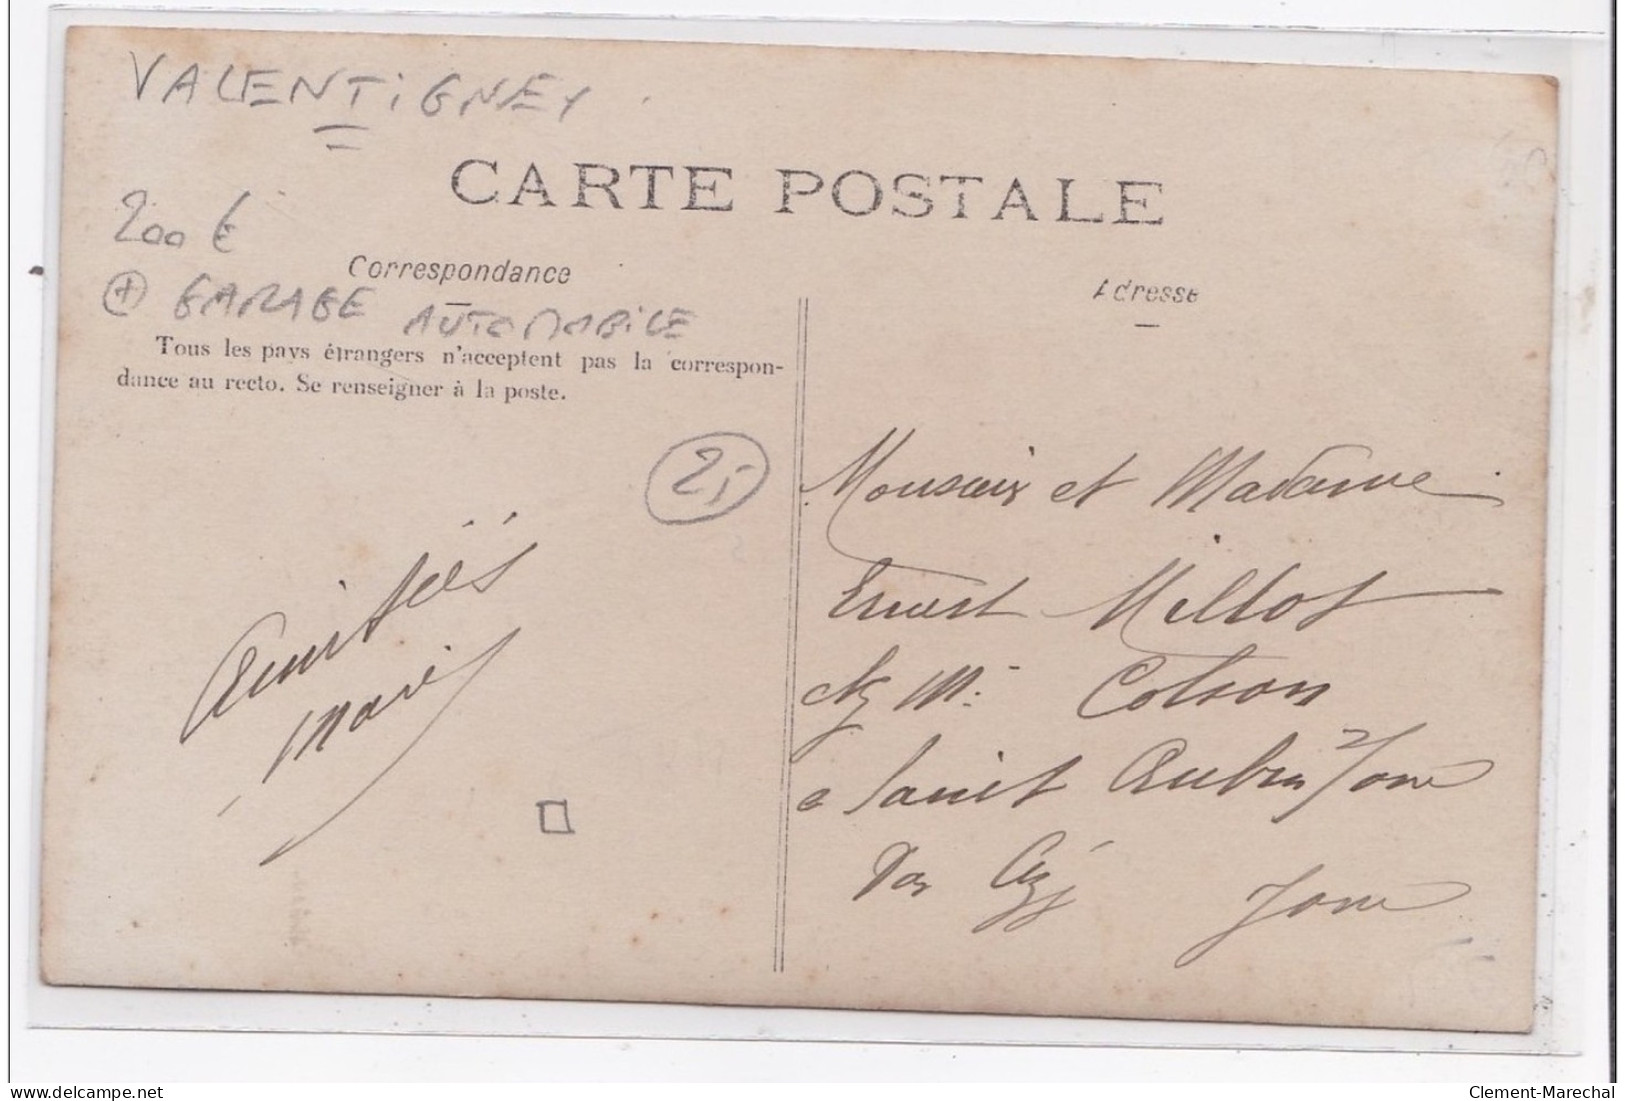 VALENTIGNEY
CARTE POSTALE
200 €
Correspondance
Adresse
+ GARAGE AUTOMOBILE
Tous les pays étrangers n'acceptent pas la correspon-
dance au recto. Se renseigner à la poste.
2,-
Amitiés
Marie
Monsieur et Madame
Ernest Millot
chez Mr Colson
a Saint Aubin Yonne
Par Yonne
delcampe.net
Clement-Marechal